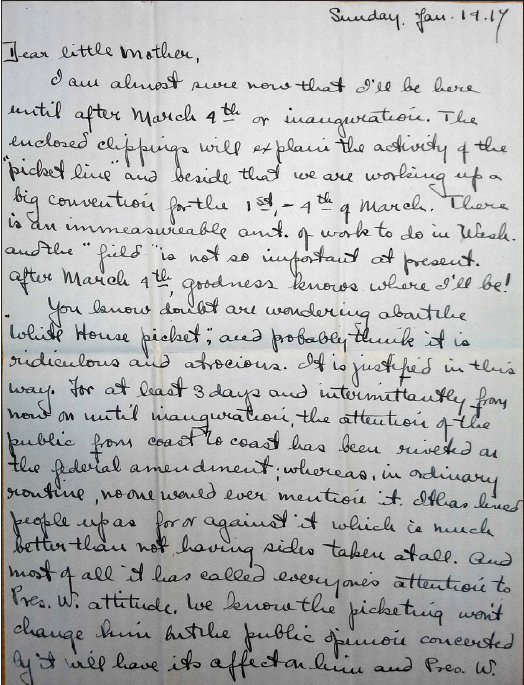 Sunday, Jan. 14.17
Dear little Mother,
I am almost sure now that I'll be here
until after March 4th or inauguration. The
enclosed clippings will explain the activity of the
"picket line" and beside that we are working up a
big convention for the 1st, - 4th of March. There
is an immeasureable amt. of work to do in Wash.
and the "field" is not so important at present.
After March 4th, goodness knows where I'll be!
You know doubt are wondering about the
"White House picket", and probably think it is
ridiculous and atrocious. It is justified in this
way. For at least 3 days and intermittantly from
now on until inauguration, the attention of the
public from coast to coast has been riveted on
the federal amendment; whereas, in ordinary
routine, no one would ever mention it. It has lined
people up as for or against it which is much
better than not having sides taken at all. And
most of all it has called everyone's attention to
Pres. W. attitude. We know the picketing won't
change him but the public opinion concerted
by it will have its affect on him and Pres. W.